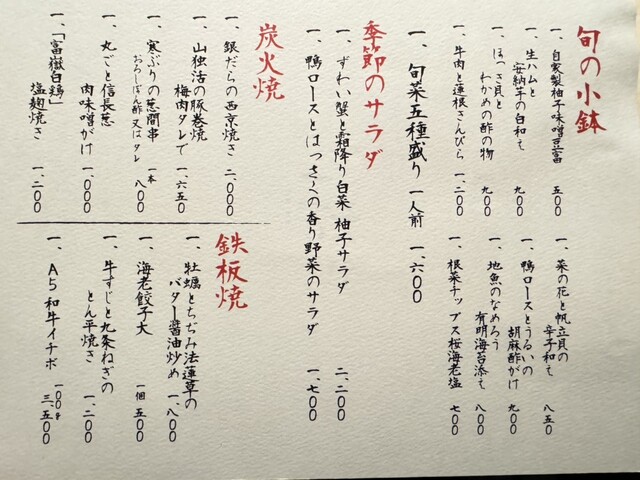 旬の小鉢
一、自家製柚子味噌豆富 五〇〇
一、生ハムと
安納芋の白和え 九〇〇
一、ほっき貝と
わかめの酢の物 九〇〇
一、牛肉と蓮根きんぴら 一、二〇〇
一、菜の花と帆立貝の
辛子和え 八五〇
一、鴨ロースとうるいの
胡麻酢がけ 九〇〇
一、地魚のなめろう
有明海苔添え 八〇〇
一、根菜チップス桜海老塩 七〇〇
一、旬菜五種盛り 一人前 一、六〇〇
季節のサラダ
一、ずわい蟹と霜降り白菜 柚子サラダ 二、二〇〇
一、鴨ロースとはっさくの香り野菜のサラダ 一、七〇〇
炭火焼
一、銀だらの西京焼き 二、〇〇〇
一、山独活の豚巻焼
梅肉タレで 一、六五〇
一、寒ぶりの葱間串
おろしぽん酢又はタレ 一本 八〇〇
一、丸ごと信長葱
肉味噌がけ 一、〇〇〇
一、「富嶽白鶏」
塩麹焼き 一、二〇〇
鉄板焼
一、牡蠣とちぢみ法蓮草の
バター醤油炒め 一、八〇〇
一、海老餃子大 一個 五〇〇
一、牛すじと九条ねぎの
とん平焼き 一、二〇〇
一、A5和牛イチボ 一〇〇g 三、五〇〇